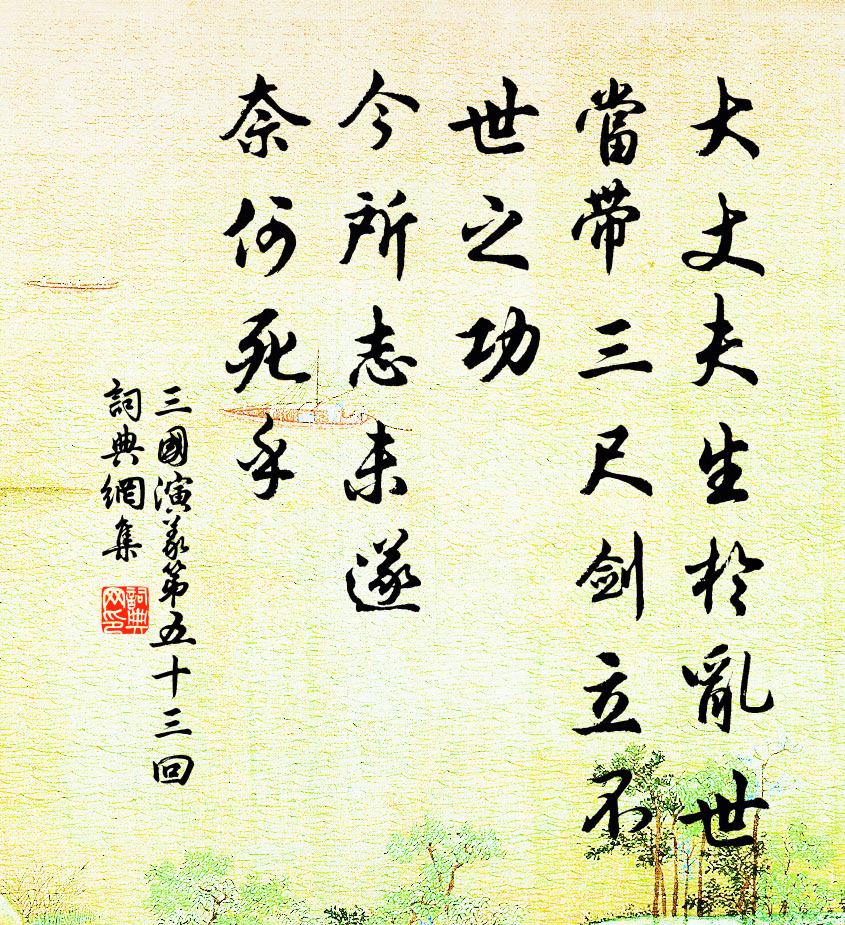 大丈夫生於亂世
當帶三尺劍立不
世之功
今所志未遂
奈何死乎
三國演義第五十三回
詞典網集
詞典网印